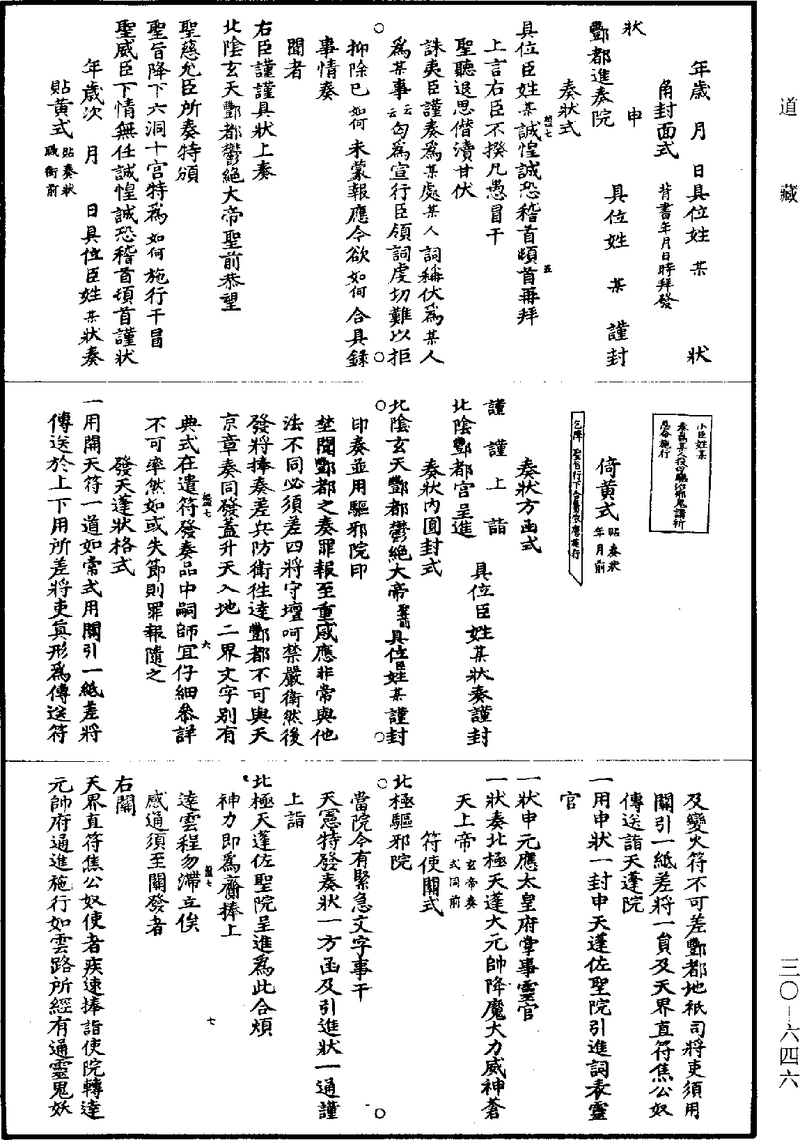 道藏
三〇—六四六
年歲 月 日具位姓 某 狀
角封面式 背書年月日時拜發
狀 申 具位姓 某 謹封
酆都進奏院
奏狀式
具位臣姓某誠惶誠恐稽首頓首再拜
上言右臣不揆凡愚冒干
聖聽退思僭瀆甘伏
誅夷臣謹奏為某處某人詞稱伏為某人
為某事云云匄為宣行臣領詞虔切難以拒
抑除已如何未蒙報應今欲如何合具錄
事情奏
聞者
右臣謹謹具狀上奏
北陰玄天酆都鬱絕大帝聖前恭望
聖慈允臣所奏特頒
聖旨降下六洞十宮特為如何施行干冒
聖威臣下情無任誠惶誠恐稽首頓首謹狀
年歲次 月 日具位臣姓某狀奏
貼黃式 貼奏狀職銜前
小臣姓某
倚黃式 貼奏狀年月前
奏狀方函式
謹 謹 上 詣
北陰酆都宮呈進 具位臣姓某狀奏謹封
奏狀內圓封式
北陰玄天酆都鬱絕大帝 具位臣姓某謹封
印奏並用驅邪院印
埜聞酆都之奏罪報至重感應非常與他
法不同必須差四將守壇呵禁嚴衛然後
發將捧奏差兵防衛往達酆都不可與天
京章奏同發蓋升天入地二界文字別有
典式在遣符發奏品中嗣師宜仔細參詳
不可率然如或失節則罪報隨之
發天蓬狀格式
一用開天符一道如常式用關引一紙差將
傳送於上下用所差將吏真形為傳送符
及變火符不可差酆都地祇司將吏須用
關引一紙差將一員及天界直符焦公奴
傳送詣天蓬院
一用申狀一封申天蓬佐聖院引進詞表靈
官
一狀申元應太皇府掌事靈官
一狀奏北極天蓬大元帥降魔大力威神蒼
天上帝 玄帝奏式同前
符使關式
北極驅邪院
當院今有緊急文字事干
天憲特發奏狀一方函及引進狀一通謹
上詣
北極天蓬佐聖院呈進為此合煩
神力即為齎捧上
達雲程勿滯立俟
感通須至關發者
右關
天界直符焦公奴使者疾速捧詣使院轉達
元帥府通進施行如雲路所經有通靈鬼妖